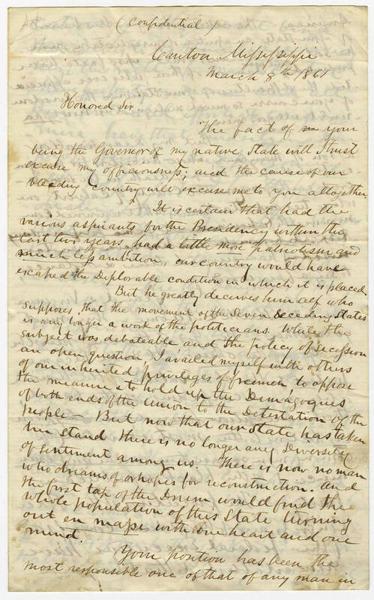 (Confidential)
Canton Mississippi
March 8th 1861
Honored Sir
The fact of your
being the Governor of my native State will I trust
excuse my officiousness; and the cause of our
bleeding country will excuse me to you altogether.
It is certain that had the
various aspirants for the Presidency within the
last two years, had a little more patriotism and
much less ambition, our country would have
escaped the Deplorable condition in which it is placed
But he greatly deceives himself who
supposes, that the movement of the Seven Seceding States
is any longer a work of the politicians. While the
subject was debateable and the policy of secession
an open question I availed myself with others
of our inherited privileges of freemen to oppose
the measure & to hold up the Demagogues
of both ends of the Union to the Detestation of the
people — But now that our State has taken
her stand there is no longer any Diversity
of sentiment among us. There is now no man
who dreams of or hopes for reconstruction. And
the first tap of the Drum would find the
whole population of this State turning
out en mass with one heart and one
mind.
Your position has been the
most responsible one of that of any man in